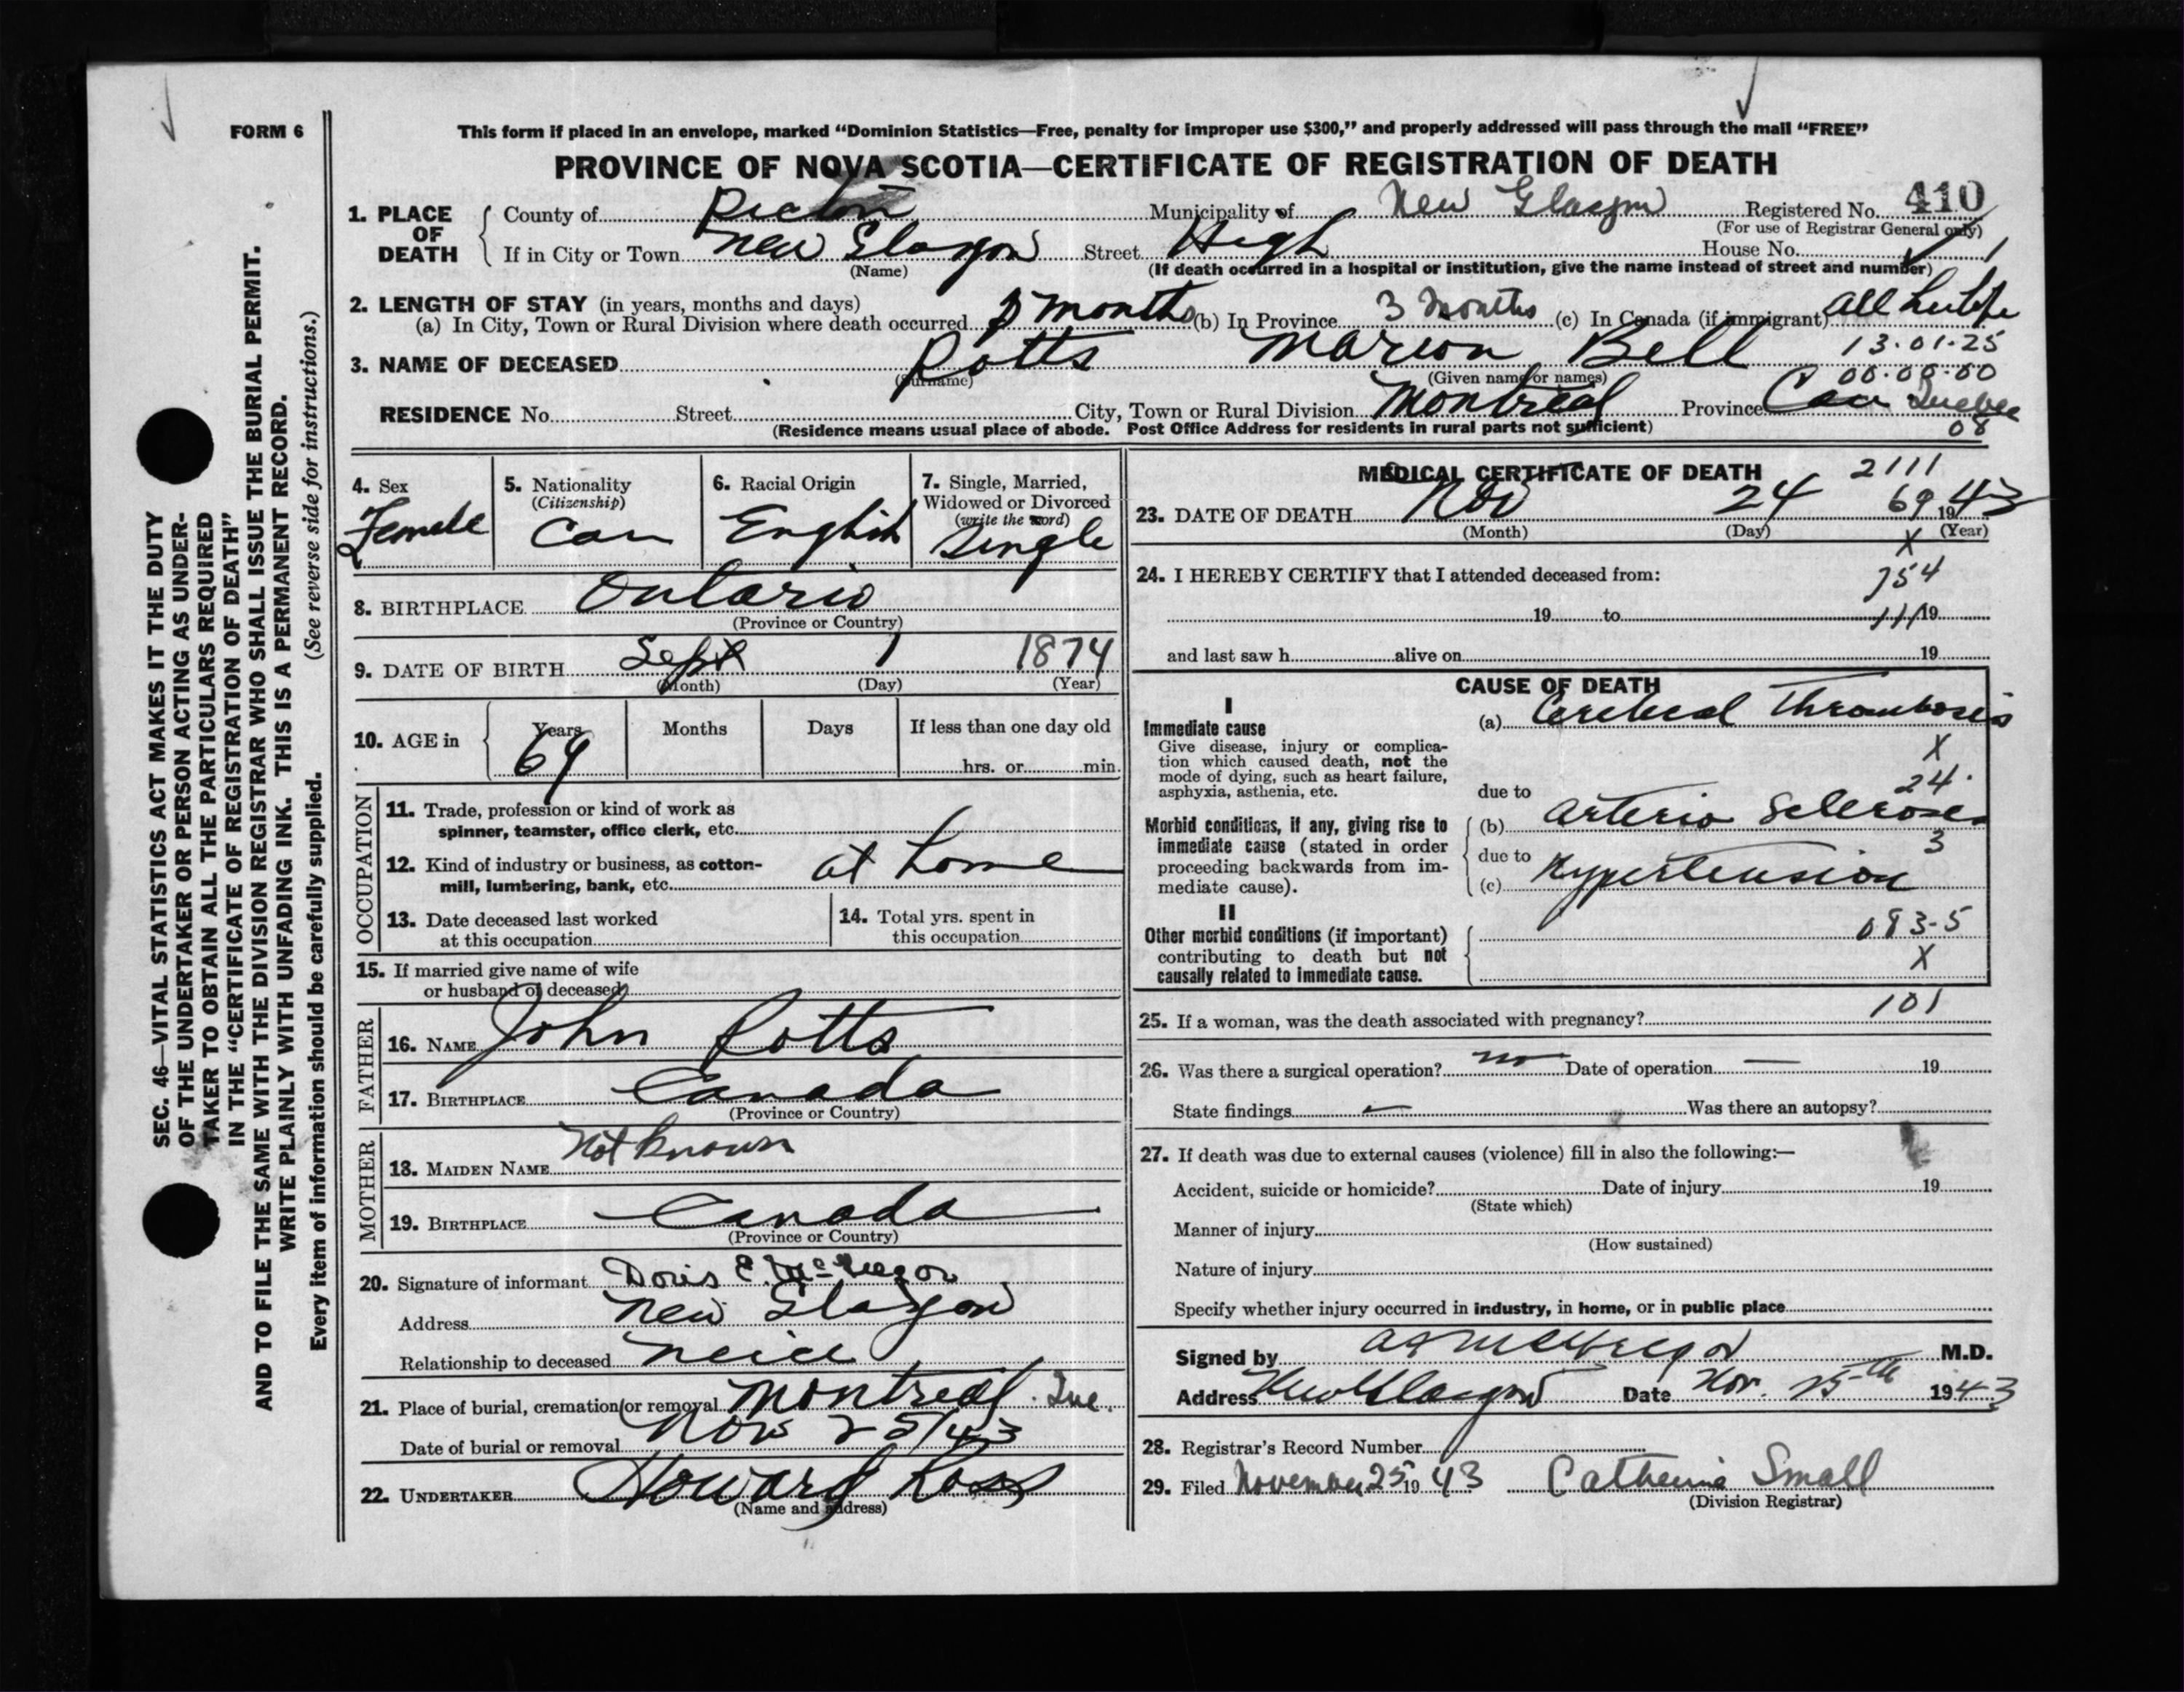 FORM 6
This form if placed in an envelope, marked “Dominion Statistics—Free, penalty for improper use $300,” and properly addressed will pass through the mail “FREE”
PROVINCE OF NOVA SCOTIA—CERTIFICATE OF REGISTRATION OF DEATH
1. PLACE OF DEATH { County of Pictou Municipality of New Glasgow Registered No. 410
(For use of Registrar General only)
If in City or Town New Glasgow Street High House No.
(Name) (If death occurred in a hospital or institution, give the name instead of street and number)
2. LENGTH OF STAY (in years, months and days)
(a) In City, Town or Rural Division where death occurred 3 months (b) In Province 3 Months (c) In Canada (if immigrant) all her life
3. NAME OF DECEASED Potts Marion Bell 13.01.25
(Surname) (Given name or names) 00.00.00
RESIDENCE No. Street City, Town or Rural Division Montreal Province Can Quebec
(Residence means usual place of abode. Post Office Address for residents in rural parts not sufficient) 08
4. Sex Female
5. Nationality (Citizenship) Can
6. Racial Origin English
7. Single, Married, Widowed or Divorced (write the word) Single
8. BIRTHPLACE Ontario
(Province or Country)
9. DATE OF BIRTH Sept 1 1874
(Month) (Day) (Year)
10. AGE in { Years 69 Months Days If less than one day old
hrs. or min.
OCCUPATION
11. Trade, profession or kind of work as
spinner, teamster, office clerk, etc.
12. Kind of industry or business, as cotton-
mill, lumbering, bank, etc. at home
13. Date deceased last worked
at this occupation
14. Total yrs. spent in
this occupation
15. If married give name of wife
or husband of deceased
FATHER
16. NAME John Potts
17. BIRTHPLACE Canada
(Province or Country)
MOTHER
18. MAIDEN NAME Not known
19. BIRTHPLACE Canada
(Province or Country)
20. Signature of informant Doris E. McGregor
Address New Glasgow
Relationship to deceased Neice
21. Place of burial, cremation or removal Montreal. Que.
Date of burial or removal Nov 25/43
22. UNDERTAKER Howard Ross
(Name and address)
MEDICAL CERTIFICATE OF DEATH 2111
23. DATE OF DEATH Nov 24 69 1943
(Month) (Day) X (Year)
24. I HEREBY CERTIFY that I attended deceased from: 754
19 to 111 19
and last saw h alive on 19
CAUSE OF DEATH
I
Immediate cause
Give disease, injury or complica-
tion which caused death, not the
mode of dying, such as heart failure,
asphyxia, asthenia, etc.
(a) Cerebral Thrombosis
X
24.
due to
Morbid conditions, if any, giving rise to
immediate cause (stated in order
proceeding backwards from im-
mediate cause).
(b) Arterio Scleroses
3
due to
(c) Hypertension
II
Other morbid conditions (if important)
contributing to death but not
causally related to immediate cause.
083-5
X
101
25. If a woman, was the death associated with pregnancy?
26. Was there a surgical operation? no Date of operation — 19
State findings — Was there an autopsy?
27. If death was due to external causes (violence) fill in also the following:—
Accident, suicide or homicide? Date of injury 19
(State which)
Manner of injury
(How sustained)
Nature of injury
Specify whether injury occurred in industry, in home, or in public place
Signed by McGregor M.D.
Address New Glasgow Date Nov. 25th 1943
28. Registrar's Record Number
29. Filed November 25 19 43 Catherine Small
(Division Registrar)
SEC. 46—VITAL STATISTICS ACT MAKES IT THE DUTY
OF THE UNDERTAKER OR PERSON ACTING AS UNDER-
TAKER TO OBTAIN ALL THE PARTICULARS REQUIRED
IN THE “CERTIFICATE OF REGISTRATION OF DEATH”
AND TO FILE THE SAME WITH THE DIVISION REGISTRAR WHO SHALL ISSUE THE BURIAL PERMIT.
WRITE PLAINLY WITH UNFADING INK. THIS IS A PERMANENT RECORD.
Every item of information should be carefully supplied. (See reverse side for instructions.)